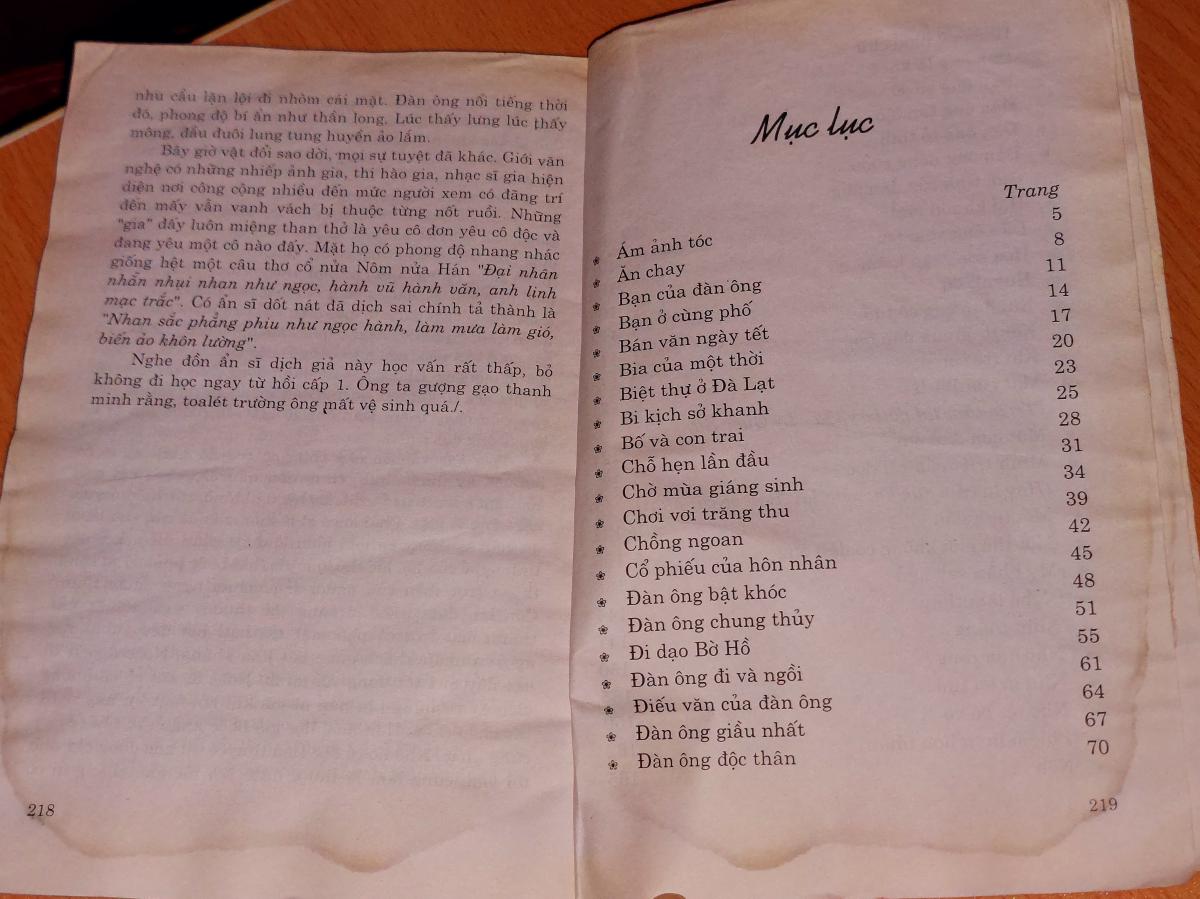 nhu cầu lặn lội đi nhòm cái mặt. Đàn ông nổi tiếng thời
đó, phong độ bí ẩn như thần long. Lúc thấy lưng lúc thấy
mông, đầu đuôi lung tung huyền ảo lắm.
Bây giờ vật đổi sao dời, mọi sự tuyệt đã khác. Giới văn
nghệ có những nhiếp ảnh gia, thi hào gia, nhạc sĩ gia hiện
diện nơi công cộng nhiều đến mức người xem có đãng trí
đến mấy vẫn vanh vách bị thuộc từng nốt ruồi. Những
"gia" đấy luôn miệng than thở là yêu cô đơn yêu cô độc và
đang yêu một cô nào đấy. Mặt họ có phong độ nhang nhác
giống hệt một câu thơ cổ nửa Nôm nửa Hán "Đại nhân
nhẵn nhụi nhan như ngọc, hành vũ hành văn, anh linh
mạc trắc". Có ẩn sĩ dốt nát đã dịch sai chính tả thành là
"Nhan sắc phẳng phiu như ngọc hành, làm mưa làm gió,
biến ảo khôn lường".
Nghe đồn ẩn sĩ dịch giả này học vấn rất thấp, bỏ
không đi học ngay từ hồi cấp 1. Ông ta gượng gạo thanh
minh rằng, toalét trường ông mất vệ sinh quá./.
218
Mục lục
Trang
Ám ảnh tóc 5
Ăn chay 8
Bạn của đàn ông 11
Bạn ở cùng phố 14
Bán văn ngày tết 17
Bia của một thời 20
Biệt thự ở Đà Lạt 23
Bi kịch sở khanh 25
Bố và con trai 28
Chỗ hẹn lần đầu 31
Chờ mùa giáng sinh 34
Chơi vơi trăng thu 39
Chồng ngoan 42
Cổ phiếu của hôn nhân 45
Đàn ông bật khóc 48
Đàn ông chung thủy 51
Đi dạo Bờ Hồ 55
Đàn ông đi và ngồi 61
Điếu văn của đàn ông 64
Đàn ông giầu nhất 67
Đàn ông độc thân 70
219